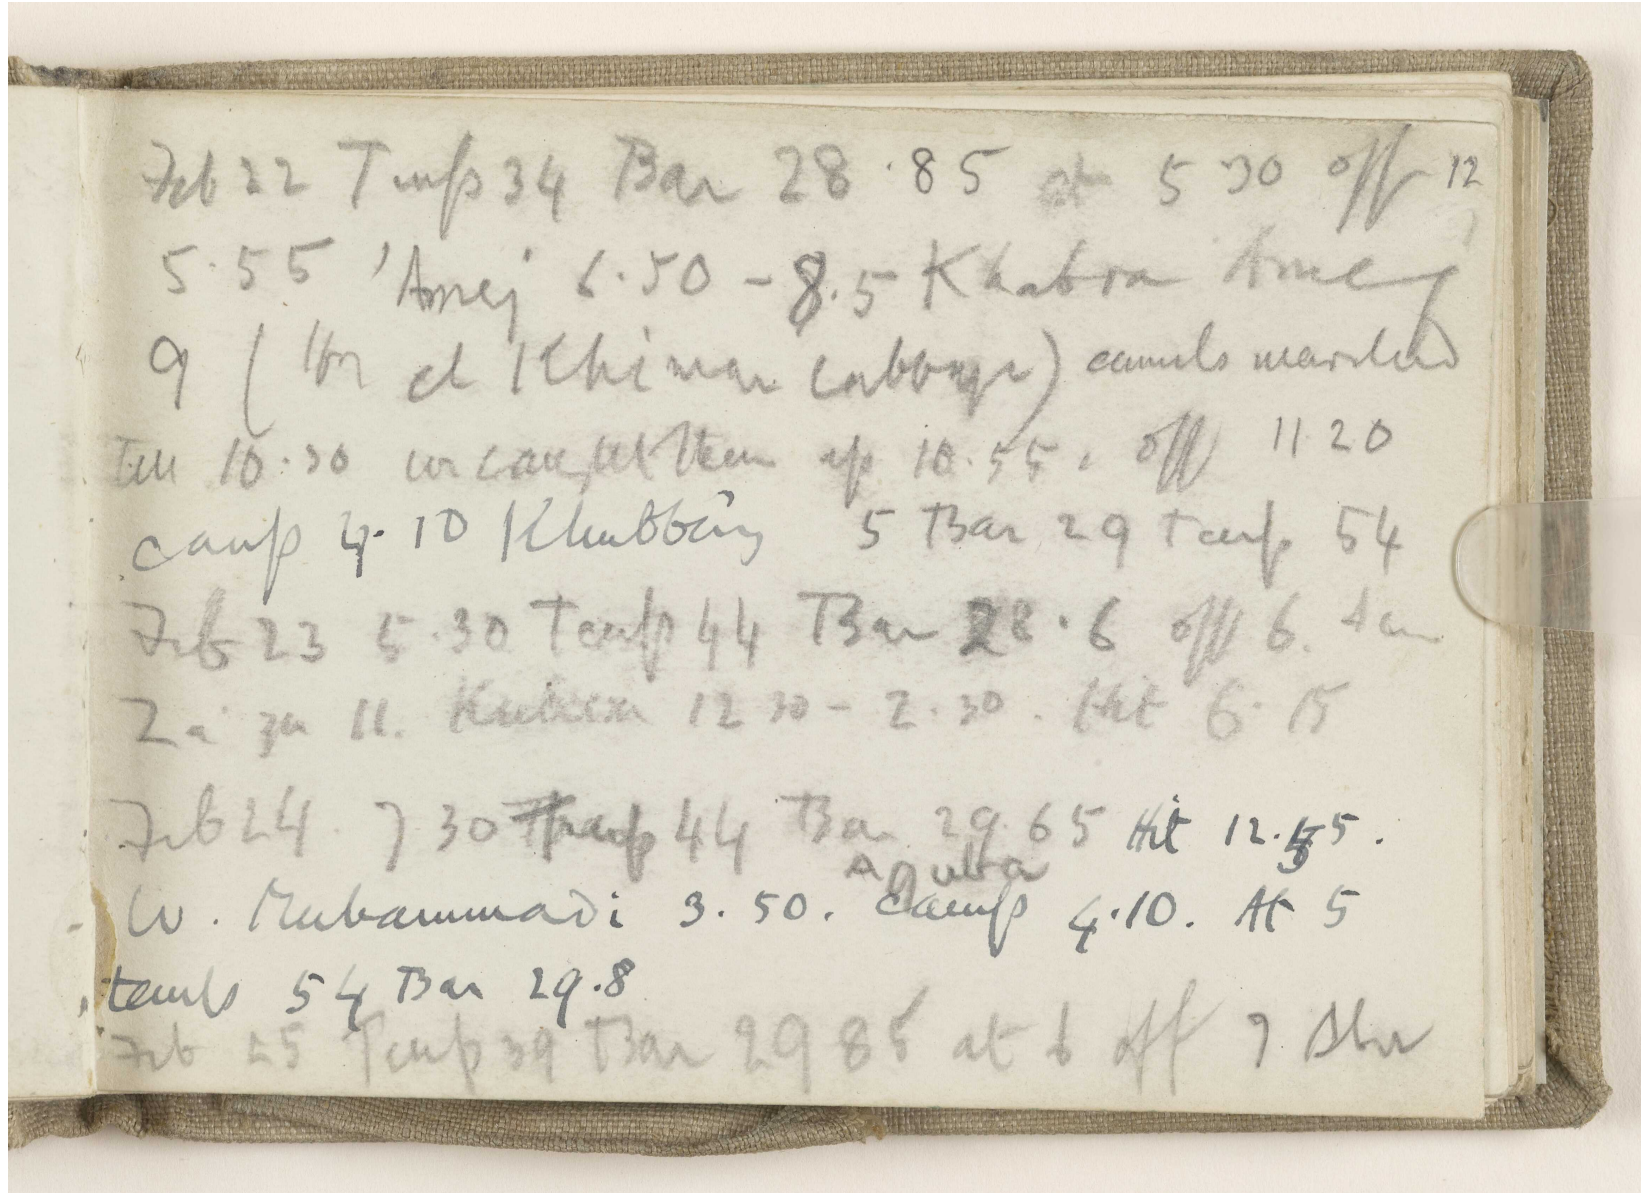 Feb 22 Temp 34 Bar 28.85 at 5 30 off 12
5.55 'Amej 6.50 - 8.5 Khabra Amej
9 ( el Khimar cabbage) camels marched
till 10.30 we caught them up 10.55. off 11 20
camp 4.10 Khubbâz 5 Bar 29 temp 54
Feb 23 5.30 Temp 44 Bar 28.6 off 6.
Za'zu 11. Kubeisa 12 30 - 2.30. Hit 6.15
Feb 24. 7 30 Temp 44 Bar 29.65 Hit 12.55.
Aguba
W. Muhammadi 3.50. camp 4.10. At 5
temp 54 Bar 29.8
Feb 25 Temp 39 Bar 29 85 at 6 off 7